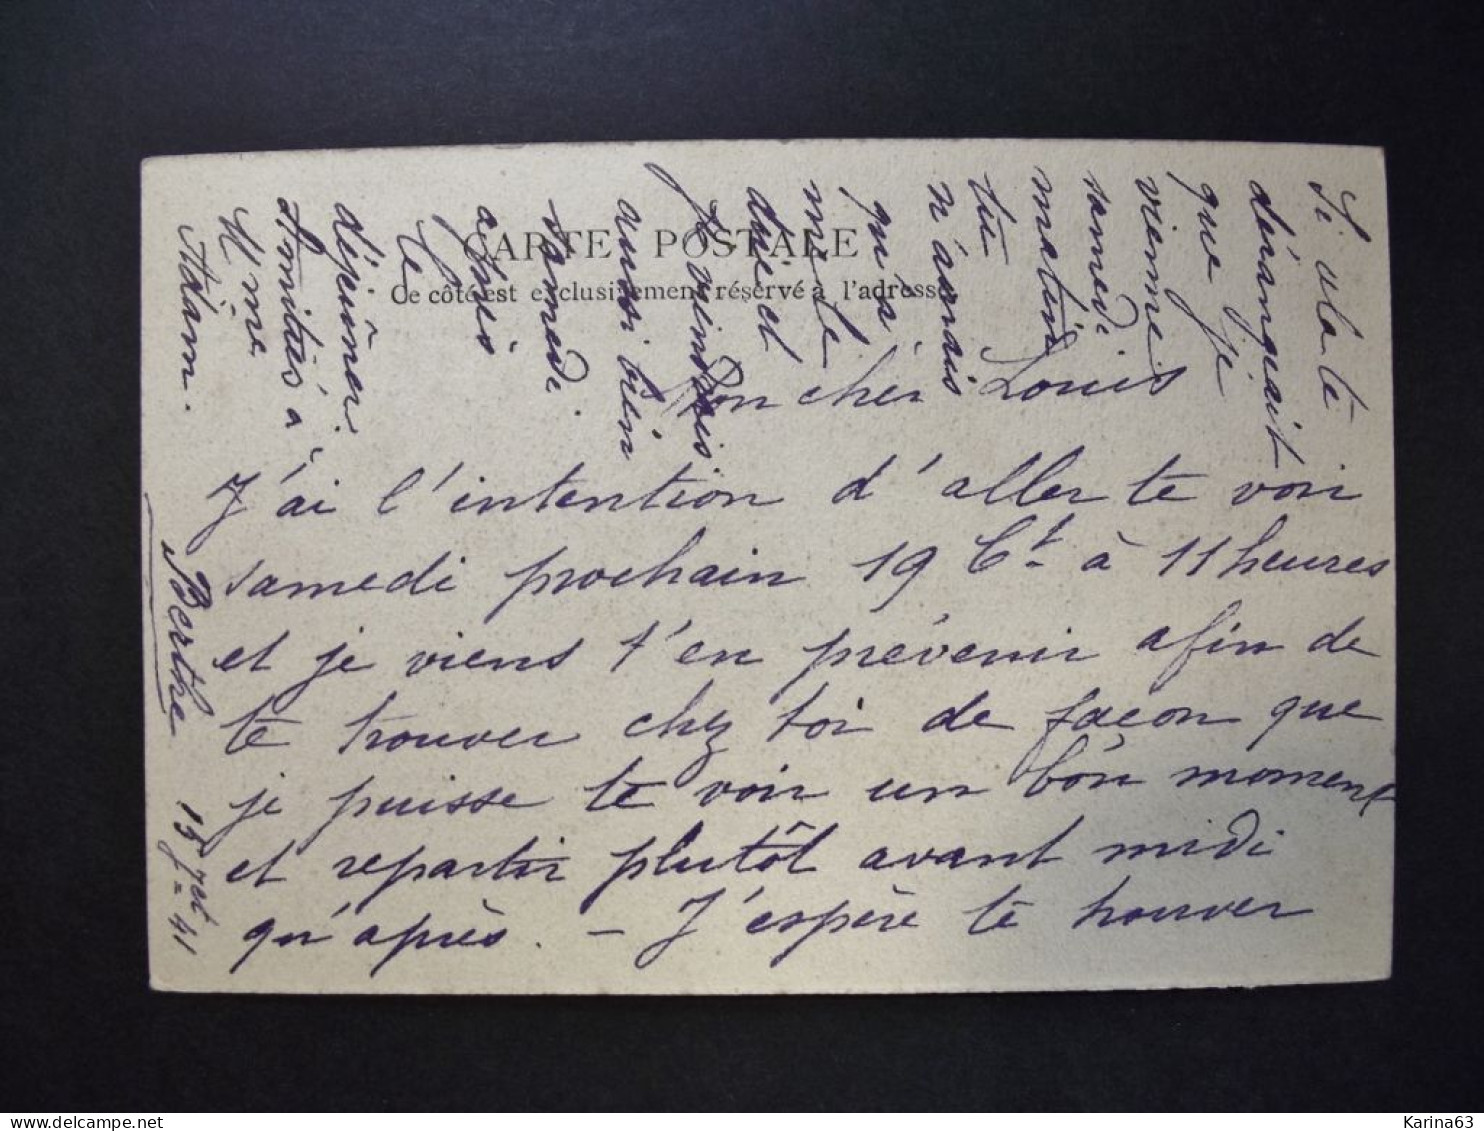 CARTE POSTALE
Ce côté est exclusivement réservé à l'adresse
Mon cher Louis
J'ai l'intention d'aller te voir
samedi prochain 19 Ct. à 11 heures
et je viens t'en prévenir afin de
te trouver chez toi de façon que
je puisse te voir un bon moment
et repartir plutôt avant midi
qu'après. - J'espère te trouver
Si cela te
dérangeait
que je
vienne
samedi
matin
tu
n'aurais
qu'à
me le
dire et
je viendrais
aussi bien
samedi
après
le
déjeûner.
Amitiés à
Mme
Adam.
Berthe
15 7et = 41
Karina63